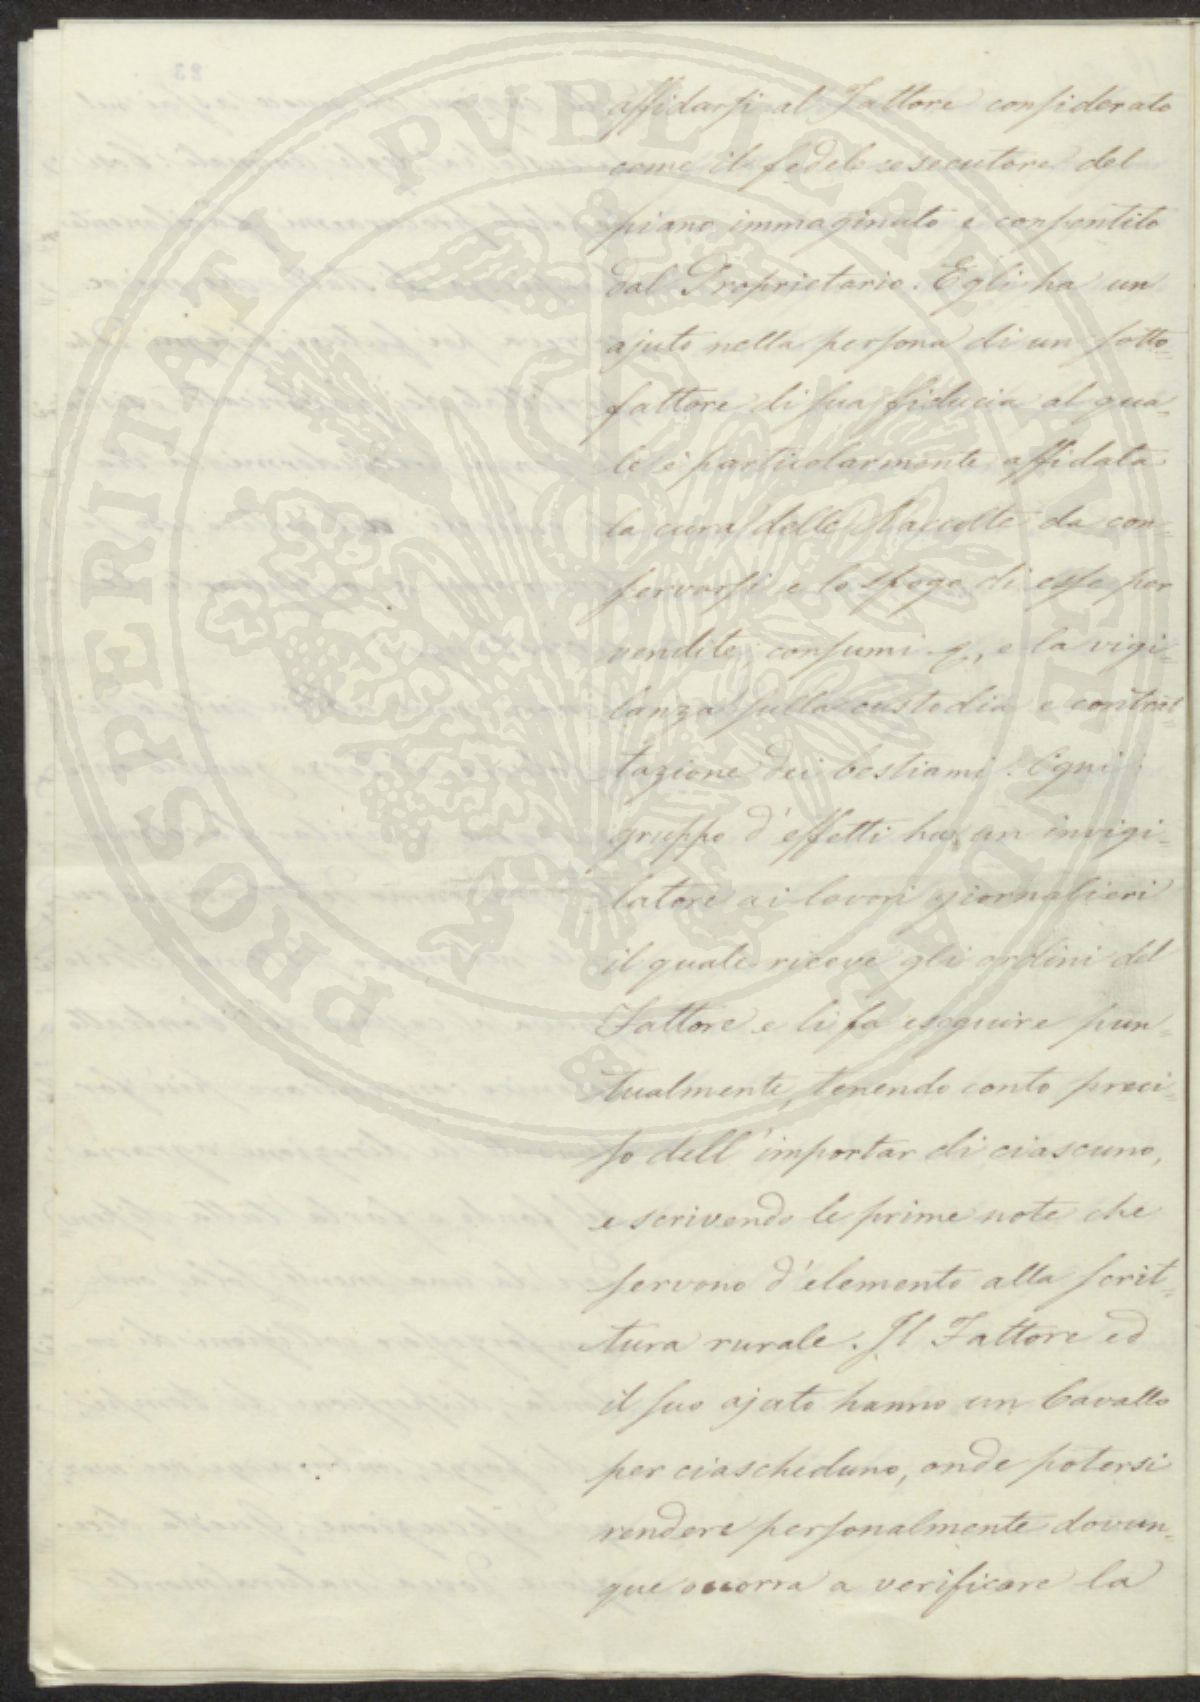 PROSPERITATI PUBLICAE AUGENDAE
affidarsi al Fattore considerato
come il fedele esecutore del
piano immaginato e consentito
dal Proprietario. Egli ha un
ajuto nella persona di un sotto=
fattore di sua fiducia al qua=
le è particolarmente affidata
la cura delle Raccolte da con=
servarsi e lo sfogo di esse per
vendite, consumi &, e la vigi=
lanza sulla custodia e contrat=
tazione dei bestiami. Ogni
gruppo d'effetti ha un invigi=
latore ai lavori giornalieri
il quale riceve gli ordini del
Fattore e li fa eseguire pun=
tualmente, tenendo conto preci=
so dell'importar di ciascuno,
e scrivendo le prime note che
servono d'elemento alla scrit=
tura rurale. Il Fattore ed
il suo ajuto hanno un Cavallo
per ciascheduno, onde potersi
rendere personalmente dovun=
que occorra a verificare la